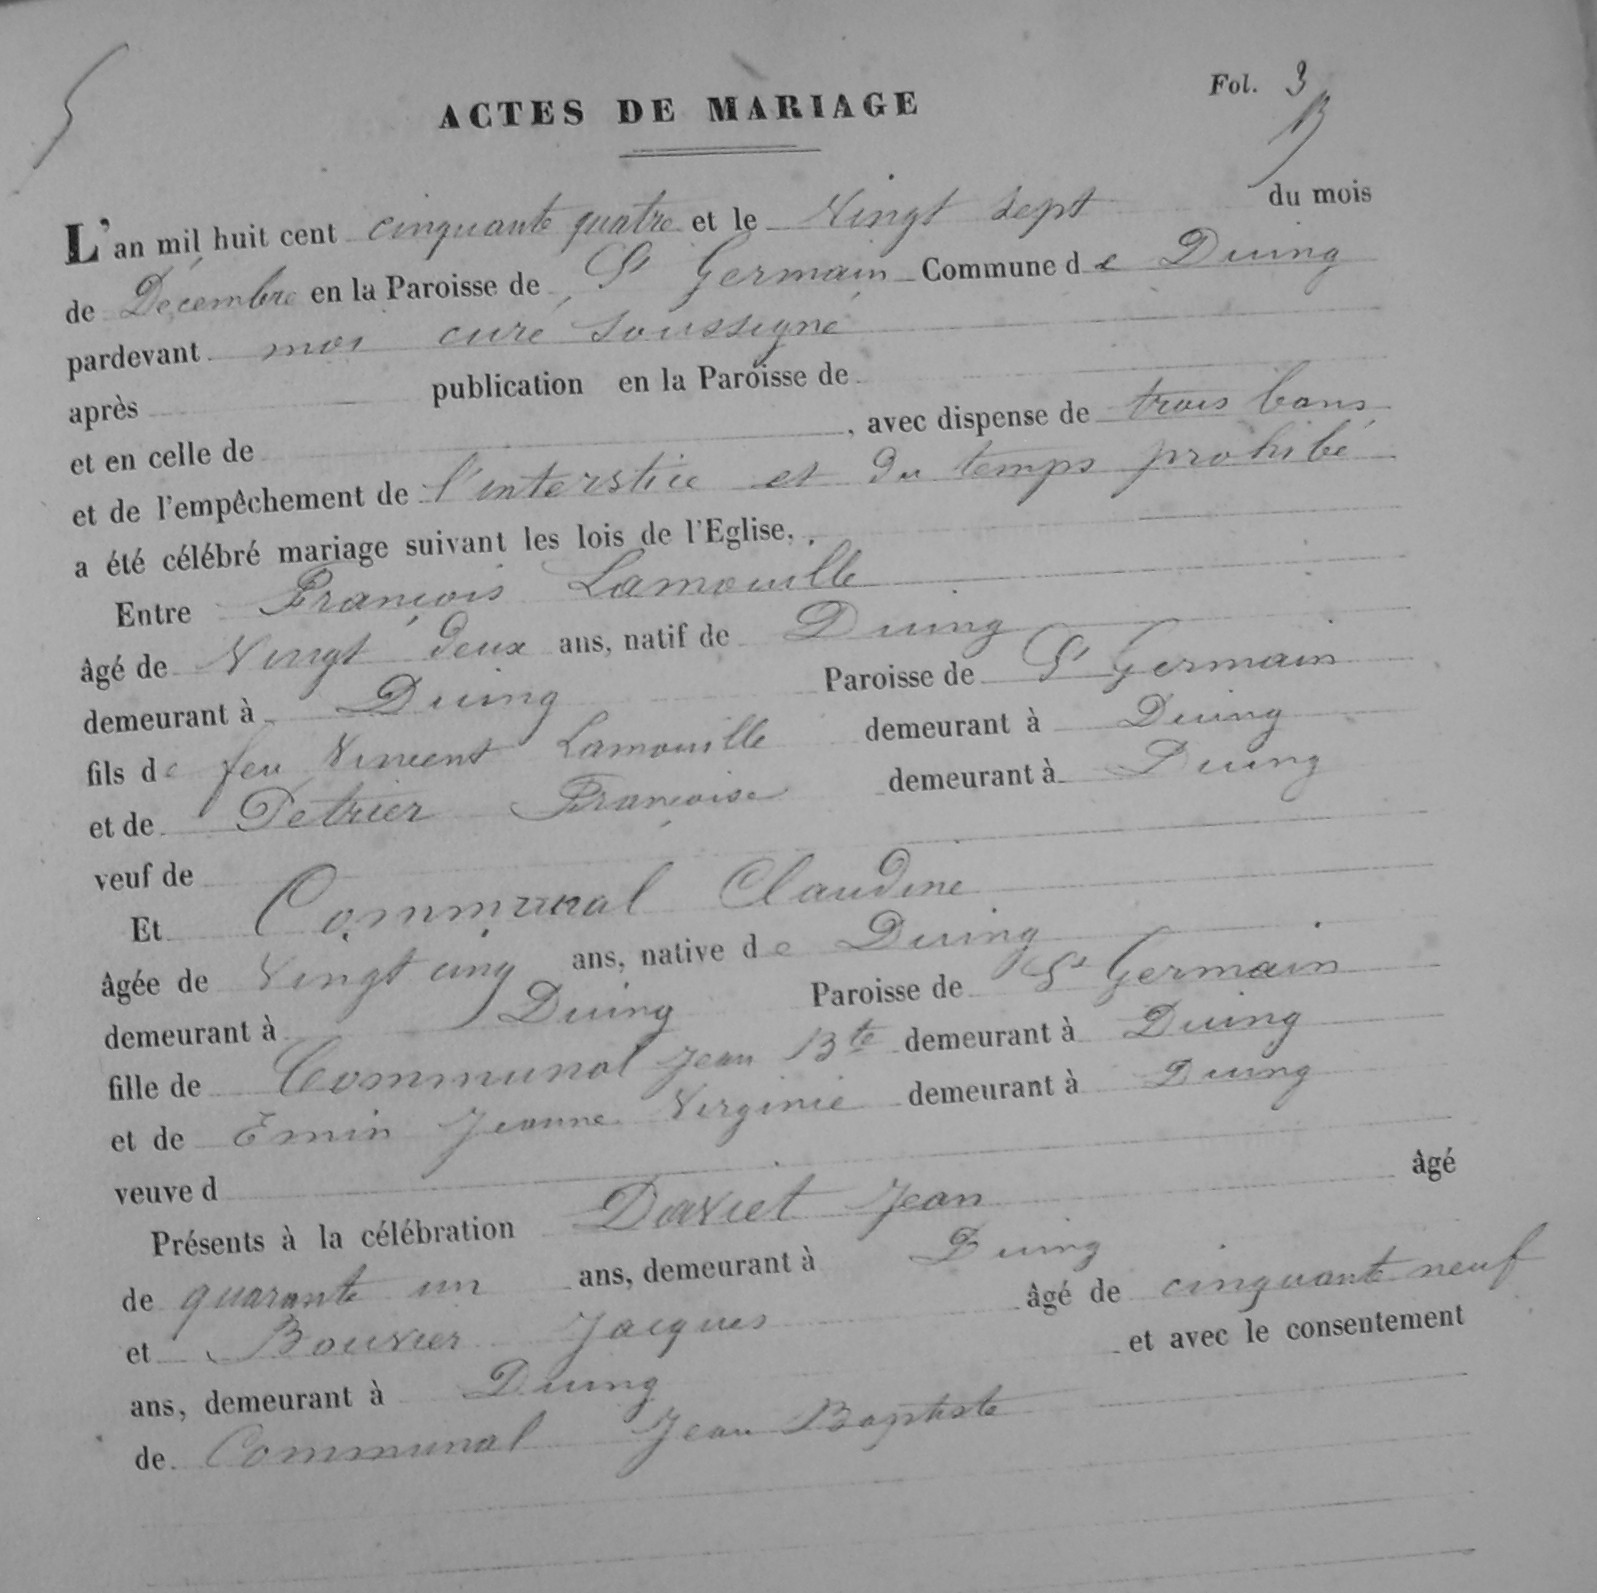 5
Fol. 3
ACTES DE MARIAGE
L'an mil huit cent cinquante quatre et le Vingt sept du mois
de Décembre en la Paroisse de St Germain Commune de Duing
pardevant moi curé soussigné
après publication en la Paroisse de
et en celle de , avec dispense de trois bans
et de l'empêchement de l'interstice et du temps prohibé
a été célébré mariage suivant les lois de l'Eglise.
Entre François Lamouille
âgé de Vingt deux ans, natif de Duing
demeurant à Duing Paroisse de St Germain
fils de feu Vincent Lamouille demeurant à Duing
et de Petrier Françoise demeurant à Duing
veuf de
Et Communal Claudine
âgée de Vingt cinq ans, native de Duing
demeurant à Duing Paroisse de St Germain
fille de Communal Jean Bte demeurant à Duing
et de Emin Jeanne Virginie demeurant à Duing
veuve d
Présents à la célébration Daviet Jean âgé
de quarante un ans, demeurant à Duing
et Bouvier Jacques âgé de cinquante neuf
ans, demeurant à Duing et avec le consentement
de Communal Jean Baptiste